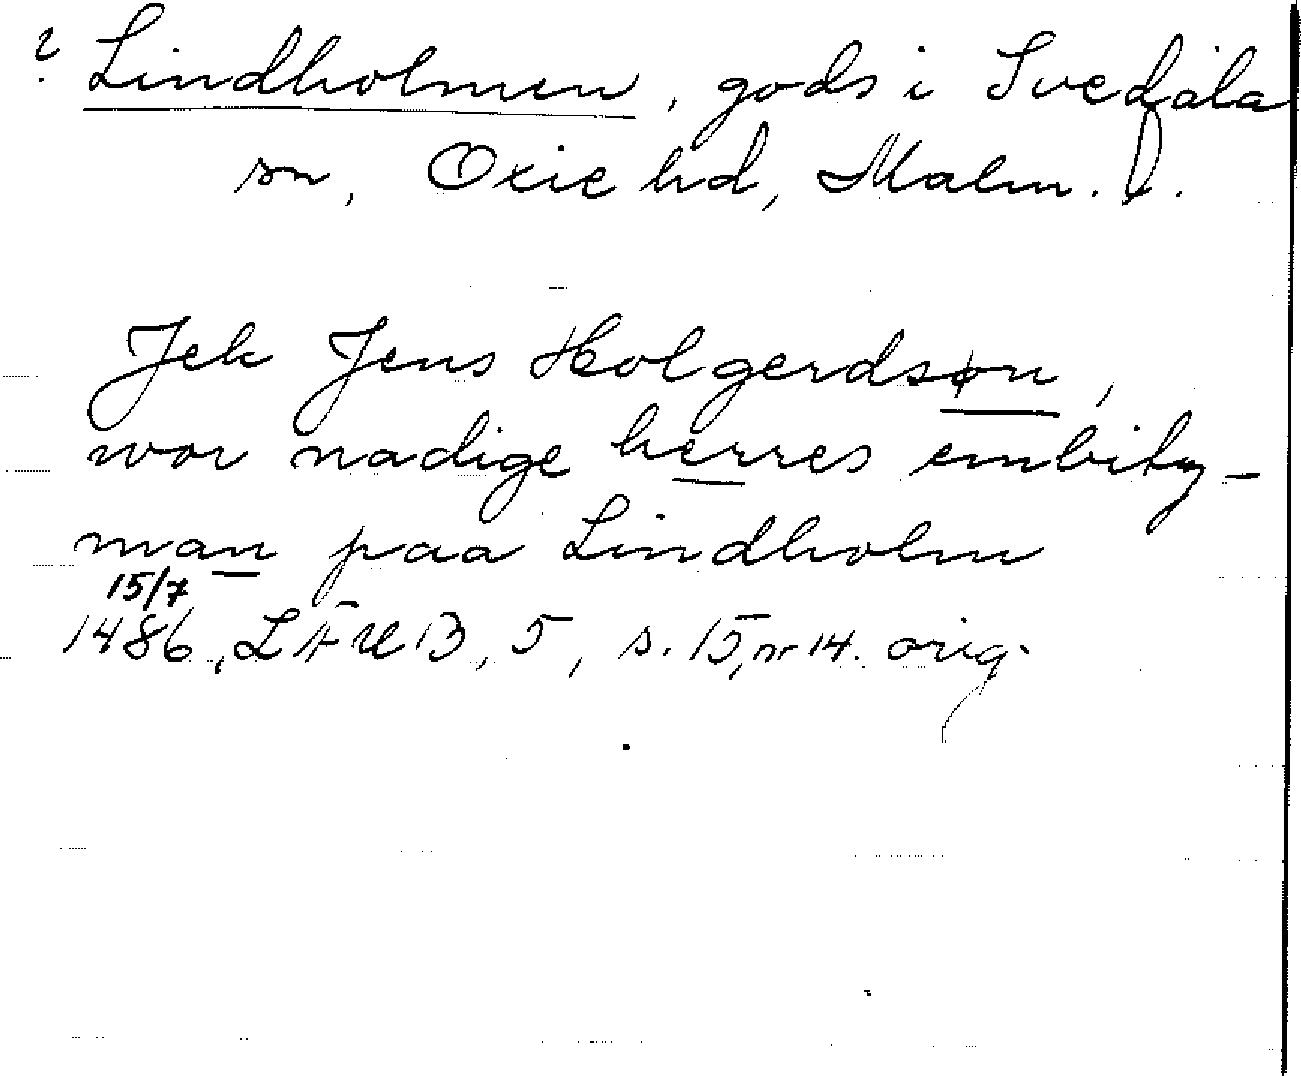 ? Lindholmen, gods i Svedala
sn, Oxie hd, Malm. l.
Jek Jens Holgerdsøn,
wor nadige herres embitz-
man paa Lindholm
15/7
1486, LÄUB, 5, s. 15, nr 14. orig.